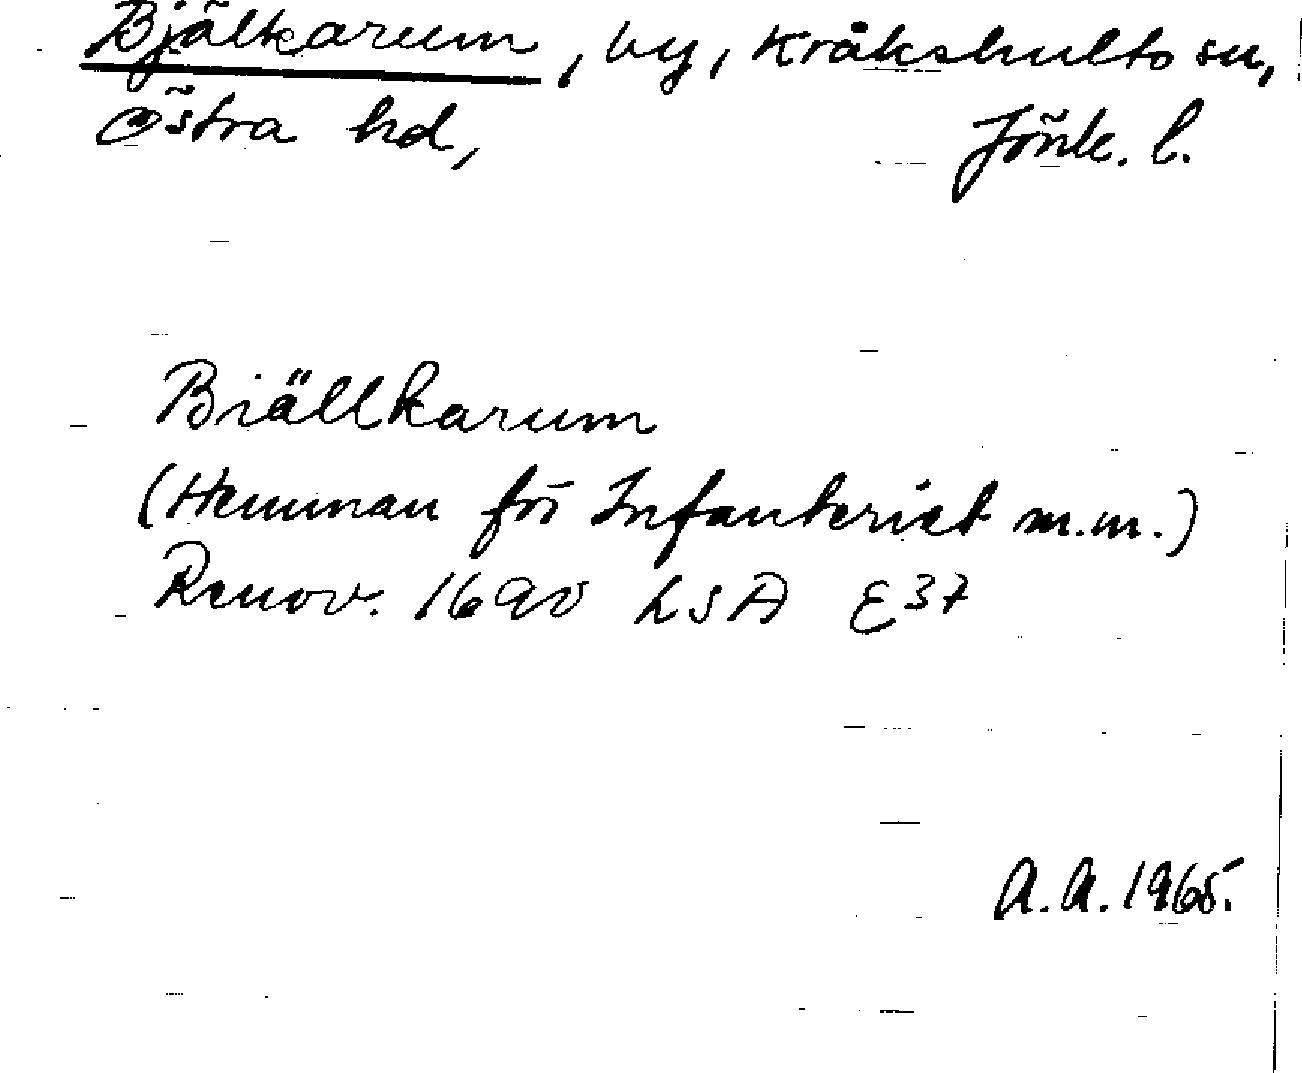 Bjälkarum, by, Kråkshults sn,
Östra hd, Jönk. l.
Biällkarum
(Hemman för Infanteriet m.m.)
Renov. 1690 LSA E37
A.A. 1965.